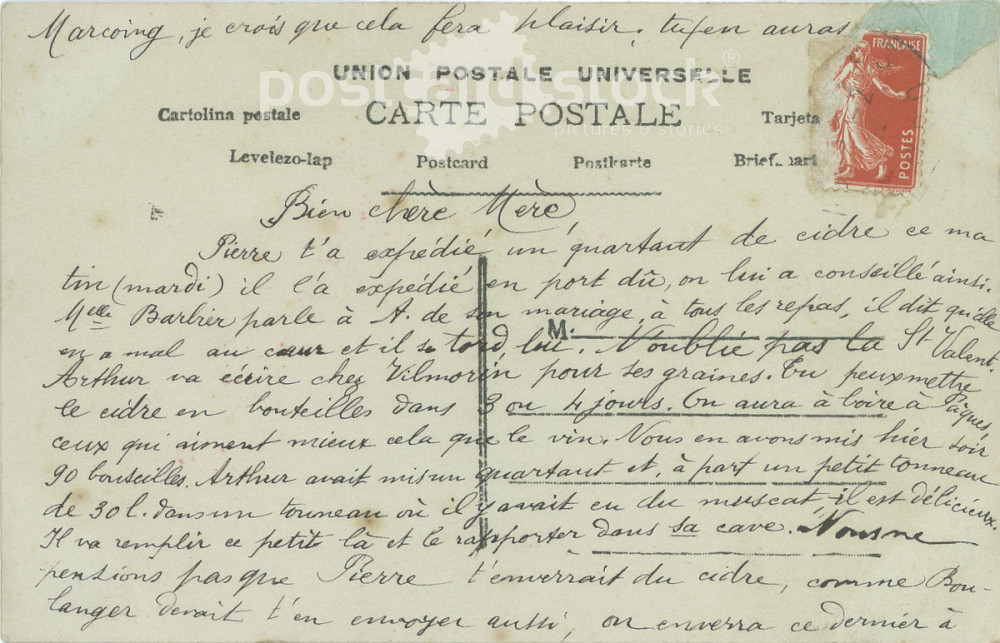 Marcoing, je crois que cela fera plaisir, tu en auras
FRANÇAISE
POSTES
postcardstock
pictures & stories
UNION POSTALE UNIVERSELLE
CARTE POSTALE
Cartolina postale
Tarjeta
Levelezo-lap Postcard Postkarte
M.
Bien chère Mère
Pierre t'a expédié un quartaut de cidre ce ma
tin (mardi) il l'a expédié en port dû, on lui a conseillé ainsi.
Melle Barbier parle à A. de son mariage à tous les repas, il dit qu'elle
en a mal au cœur et il se tord, lui. N'oublie pas la St Valent.
Arthur va écrire chez Vilmorin pour ses graines. Tu peux mettre
le cidre en bouteilles dans 3 ou 4 jours. On aura à boire à Pâques,
ceux qui aiment mieux cela que le vin. Nous en avons mis hier soir
90 bouteilles. Arthur avait mis un quartaut et, à part un petit tonneau
de 30 l. dans un tonneau où il y avait eu du muscat, il est délicieux.
Il va remplir ce petit là et le rapporter dans sa cave. Nous ne
pensions pas que Pierre t'enverrait du cidre, comme Bou-
langer devait t'en envoyer aussi, on enverra ce dernier à